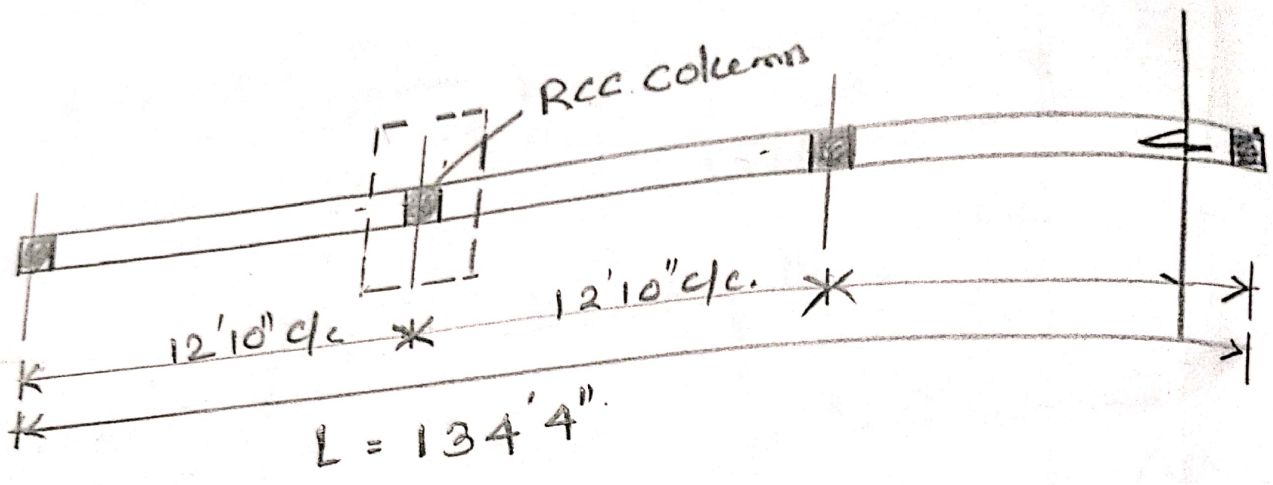 RCC. Column
12'10" c/c
12'10" c/c.
L = 134'4".